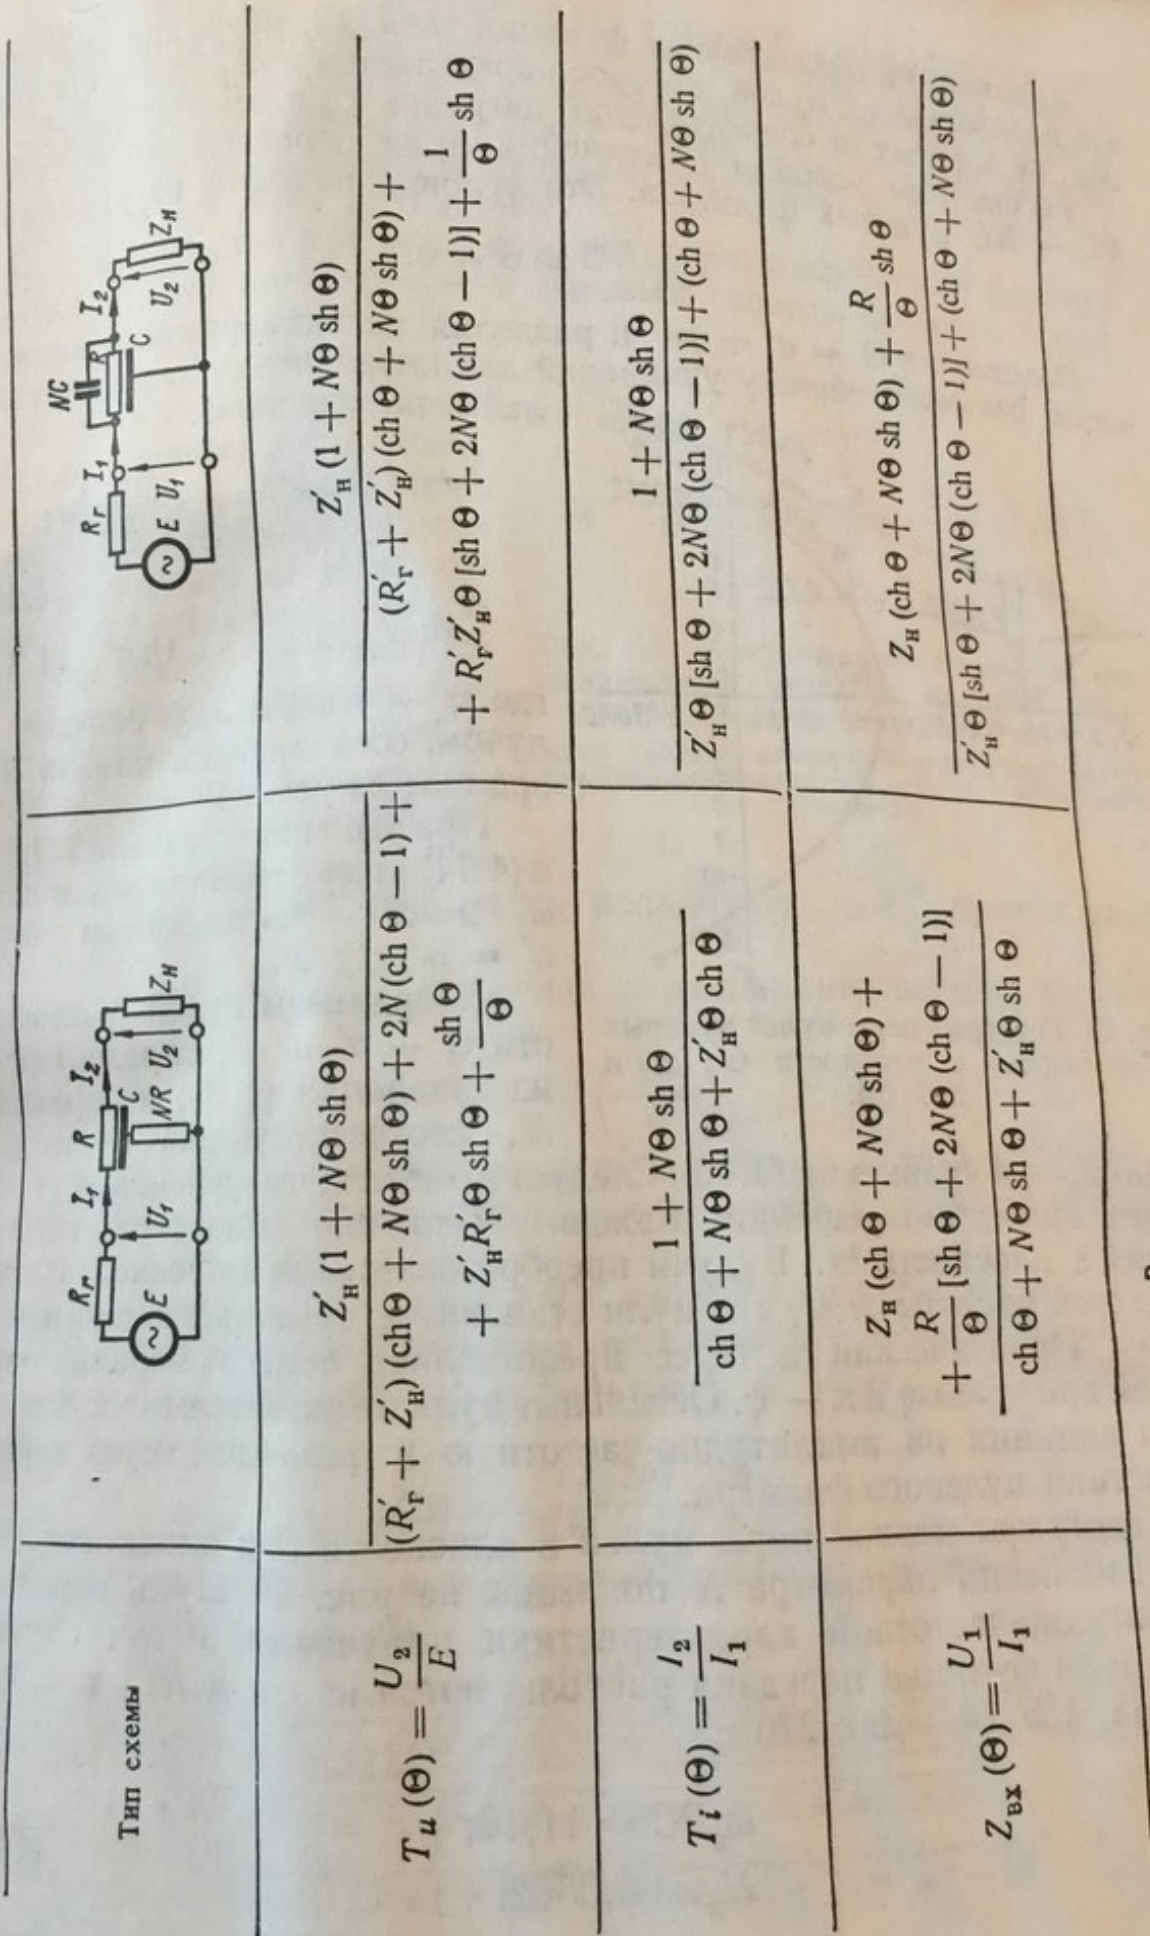 Тип схемы
R_г I_1 R I_2
E U_1 C NR U_2 Z_н
NC
R_г I_1 R I_2
E U_1 C U_2 Z_н
T_u (Θ) = U_2 / E
Z′_н (1 + NΘ sh Θ)
(R′_г + Z′_н) (ch Θ + NΘ sh Θ) + 2N (ch Θ − 1) +
+ Z′_н R′_г Θ sh Θ + sh Θ / Θ
Z′_н (1 + NΘ sh Θ)
(R′_г + Z′_н) (ch Θ + NΘ sh Θ) +
+ R′_г Z′_н Θ [sh Θ + 2NΘ (ch Θ − 1)] + 1 / Θ sh Θ
T_i (Θ) = I_2 / I_1
1 + NΘ sh Θ
ch Θ + NΘ sh Θ + Z′_н Θ ch Θ
1 + NΘ sh Θ
Z′_н Θ [sh Θ + 2NΘ (ch Θ − 1)] + (ch Θ + NΘ sh Θ)
Z_вх (Θ) = U_1 / I_1
Z_н (ch Θ + NΘ sh Θ) +
+ R / Θ [sh Θ + 2NΘ (ch Θ − 1)]
ch Θ + NΘ sh Θ + Z′_н Θ sh Θ
Z_н (ch Θ + NΘ sh Θ) + R / Θ sh Θ
Z′_н Θ [sh Θ + 2NΘ (ch Θ − 1)] + (ch Θ + NΘ sh Θ)